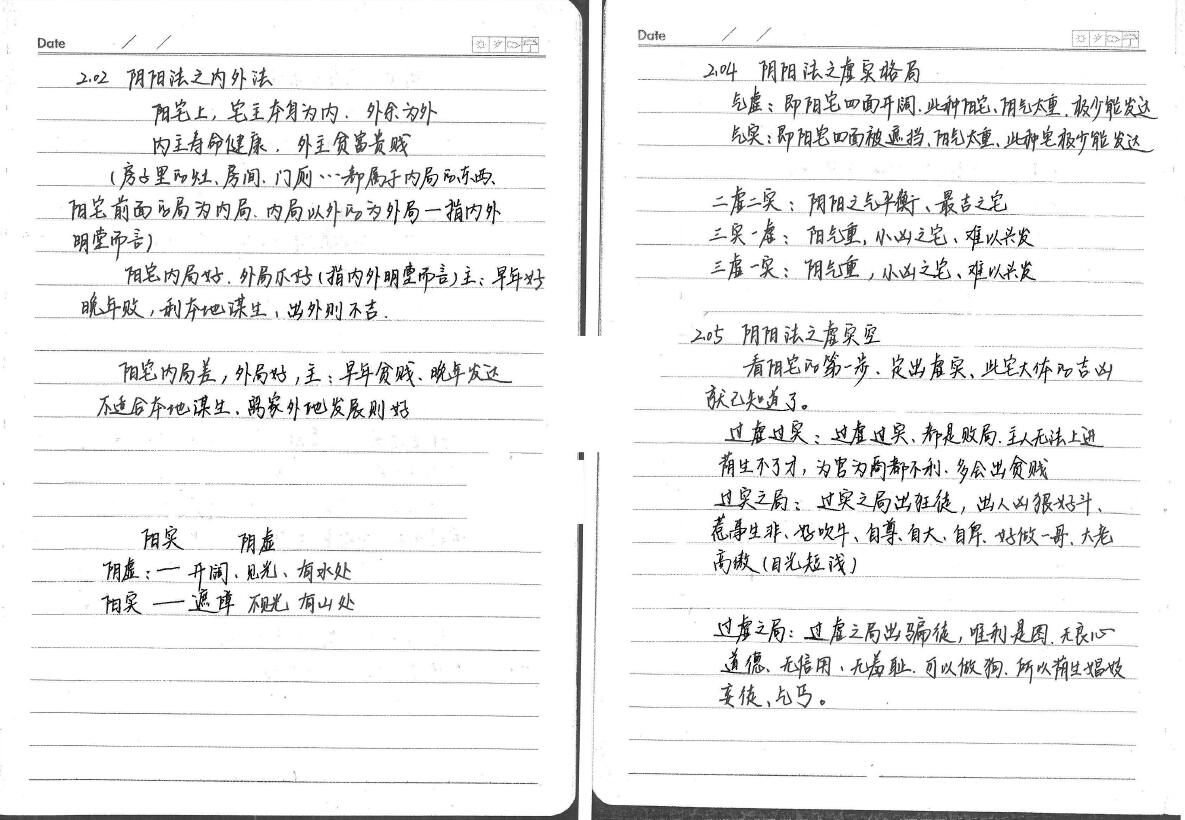 Date / /
2.02 阴阳法之内外法
阳宅上,宅主本身为内.外余为外
内主寿命健康.外主贫富贵贱
(房子里的灶、房间、门厕…都属于内局的东西、
阳宅前面的局为内局.内局以外的为外局—指内外
明堂而言)
阳宅内局好.外局不好(指内外明堂而言)主:早年好
晚年败,利本地谋生、出外则不吉.
阳宅内局差,外局好,主:早年贫贱、晚年发达
不适合本地谋生、离家外地发展则好
阳实 阴虚
阴虚:— 开阔、见光、有水处
阳实 — 遮障 不见光 有山处
Date / /
2.04 阴阳法之虚实格局
气虚:即阳宅四面开阔.此种阳宅、阴气太重、极少能发达
气实:即阳宅四面被遮挡、阳气太重、此种宅极少能发达
二虚二实:阴阳之气平衡、最吉之宅
三实一虚:阳气重,小凶之宅、难以兴发
三虚一实:阴气重,小凶之宅、难以兴发
2.05 阴阳法之虚实空
看阳宅的第一步、定出虚实、此宅大体的吉凶
就已知道了。
过虚过实:过虚过实、都是败局.主人无法上进
荫生不了才,为官为商都不利.多会出贫贱
过实之局:过实之局出狂徒,出人凶狠好斗、
惹事生非、好吹牛、自尊、自大、自卑、好做一哥、大老
高傲(目光短浅)
过虚之局:过虚之局出骗徒,唯利是图.无良心
道德、无信用、无羞耻.可以做狗.所以荫生娼妓
变徒、乞丐。